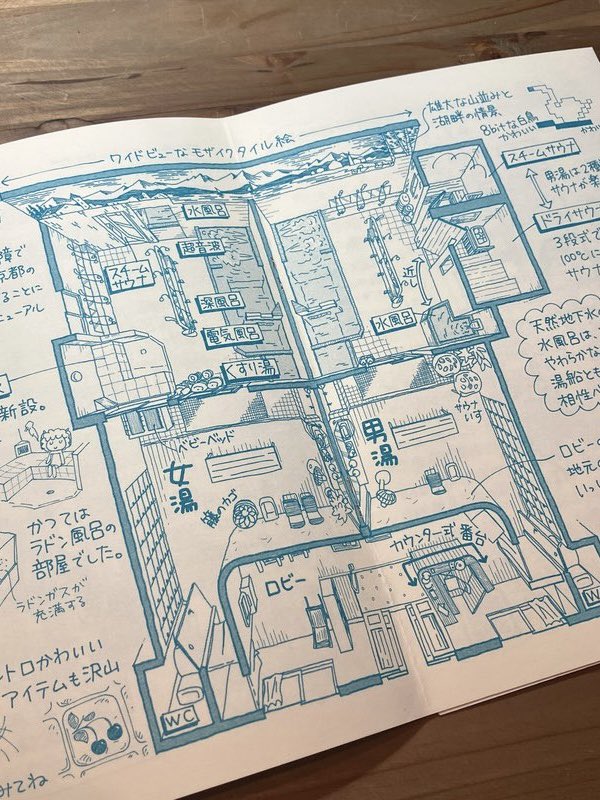 ワイドビューなモザイクタイル絵
雄大な山並みと
湖畔の情景
8bitな白鳥
かわいい
スチームサウナ
男湯は2種
サウナが楽
ドライサウナ
3段式で
100℃に
サウナ
水風呂
超音波
スチーム
サウナ
深風呂
電気風呂
くすり湯
近い
水風呂
天然地下水の
水風呂は、
やわらかな
湯船とも
相性
京都の
ることに
ニューアル
新設。
ベビーベッド
女湯
籐のカゴ
男湯
サウナ
いす
ロビーの
地元の
いっ
かつては
ラドン風呂の
部屋でした。
ラドンガスが
充満する
ロビー
カウンター式番台
トロかわいい
アイテムも沢山
みてね
WC
WC